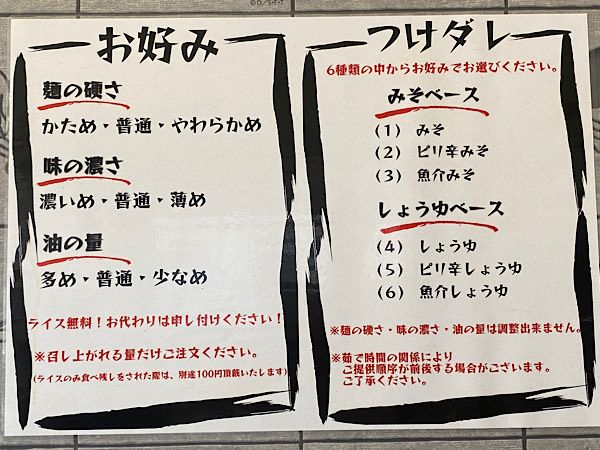 お好み
麺の硬さ
かため・普通・やわらかめ
味の濃さ
濃いめ・普通・薄め
油の量
多め・普通・少なめ
ライス無料！お代わりは申し付けください！
※召し上がれる量だけご注文ください。
(ライスのみ食べ残しをされた際は、別途100円頂戴いたします)
つけダレ
6種類の中からお好みでお選びください。
みそベース
(1) みそ
(2) ピリ辛みそ
(3) 魚介みそ
しょうゆベース
(4) しょうゆ
(5) ピリ辛しょうゆ
(6) 魚介しょうゆ
※麺の硬さ・味の濃さ・油の量は調整出来ません。
※茹で時間の関係により
ご提供順序が前後する場合がございます。
ご了承ください。